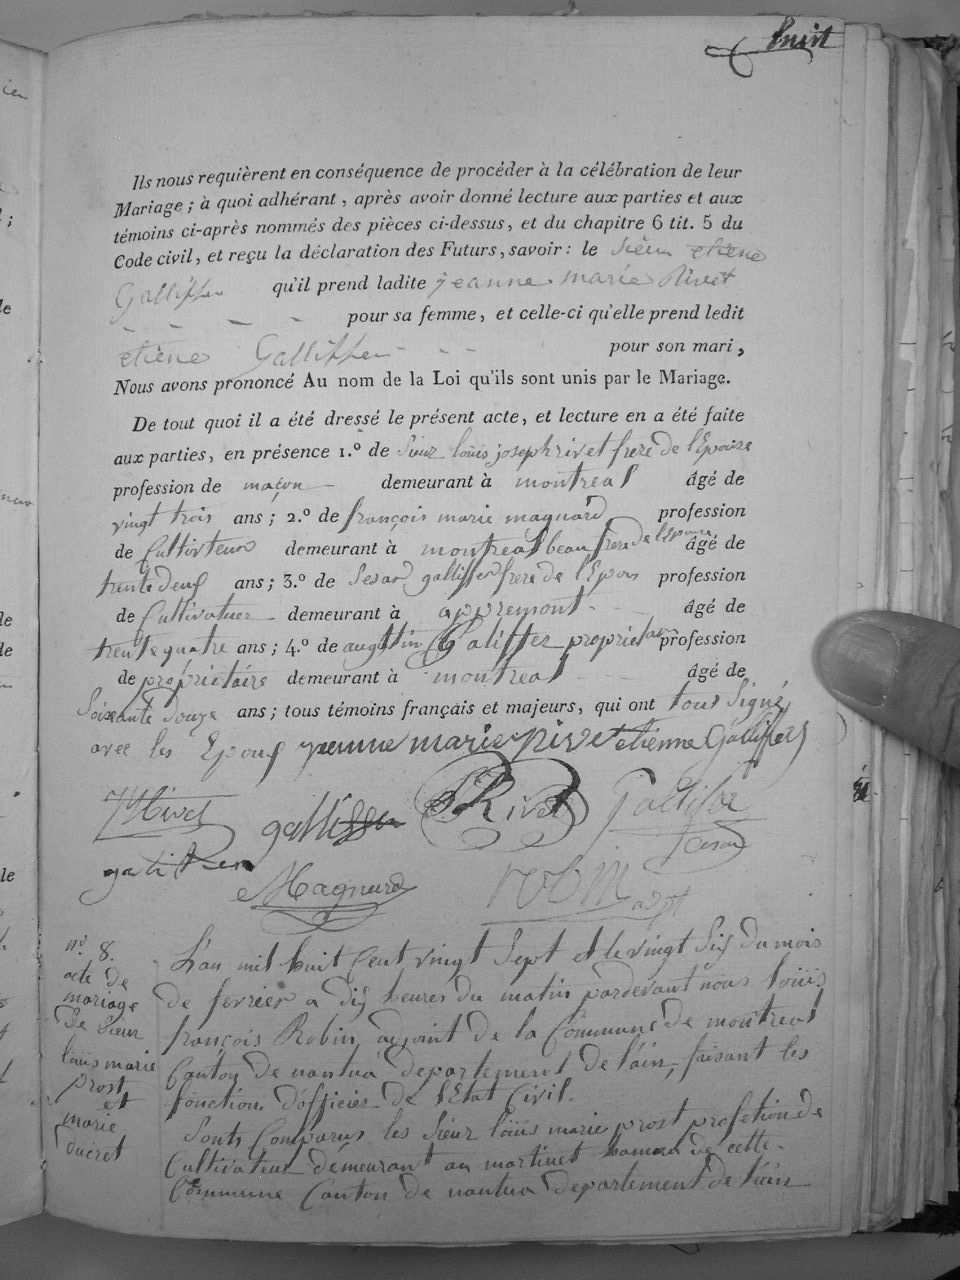 huit
Ils nous requièrent en conséquence de procéder à la célébration de leur
Mariage ; à quoi adhérant, après avoir donné lecture aux parties et aux
témoins ci-après nommés des pièces ci-dessus, et du chapitre 6 tit. 5 du
Code civil, et reçu la déclaration des Futurs, savoir : le sieur etiene
Galliffer qu'il prend ladite jeanne marie Rivet
pour sa femme, et celle-ci qu'elle prend ledit
etiene Galliffer pour son mari,
Nous avons prononcé Au nom de la Loi qu'ils sont unis par le Mariage.
De tout quoi il a été dressé le présent acte, et lecture en a été faite
aux parties, en présence 1.º de sieur louis joseph rivet frere de l'Epouse
profession de maçon demeurant à montreal âgé de
vingt trois ans ; 2.º de françois marie magnard profession
de Cultivateur demeurant à montreal beau frere de l'Epouse âgé de
trente deux ans ; 3.º de Sesar galliffer frere de l'Epous profession
de Cultivatuer demeurant à appremont âgé de
trente quatre ans ; 4.º de augttin Galiffer proprietaire profession
de propriétaire demeurant à montreal âgé de
Soixante Douze ans ; tous témoins français et majeurs, qui ont tous Signé
avec les Epoux jeanne marie Rivet etienne Galliffer
Rivet galliffer Rivet Galliffer
Cesar
galiffer Magnard robin
adjt
nº 8.
acte de
mariage
De Sieur
louis marie
prost
et
marie
Ducret
L'an mil huit Cent vingt Sept et le vingt Six du mois
de fevrier a Dix heures du matin pardevant nous louis
françois Robin, adjoint de la Commune de montreal
Canton De nantua departement De l'ain, faisant les
fonction d'officier de l'Etat Civil.
Sonts Comparus les Sieur louis marie prost profetion de
Cultivateur demeurant au martinet hameau de cette
Commune Canton de nantua departement de l'ain